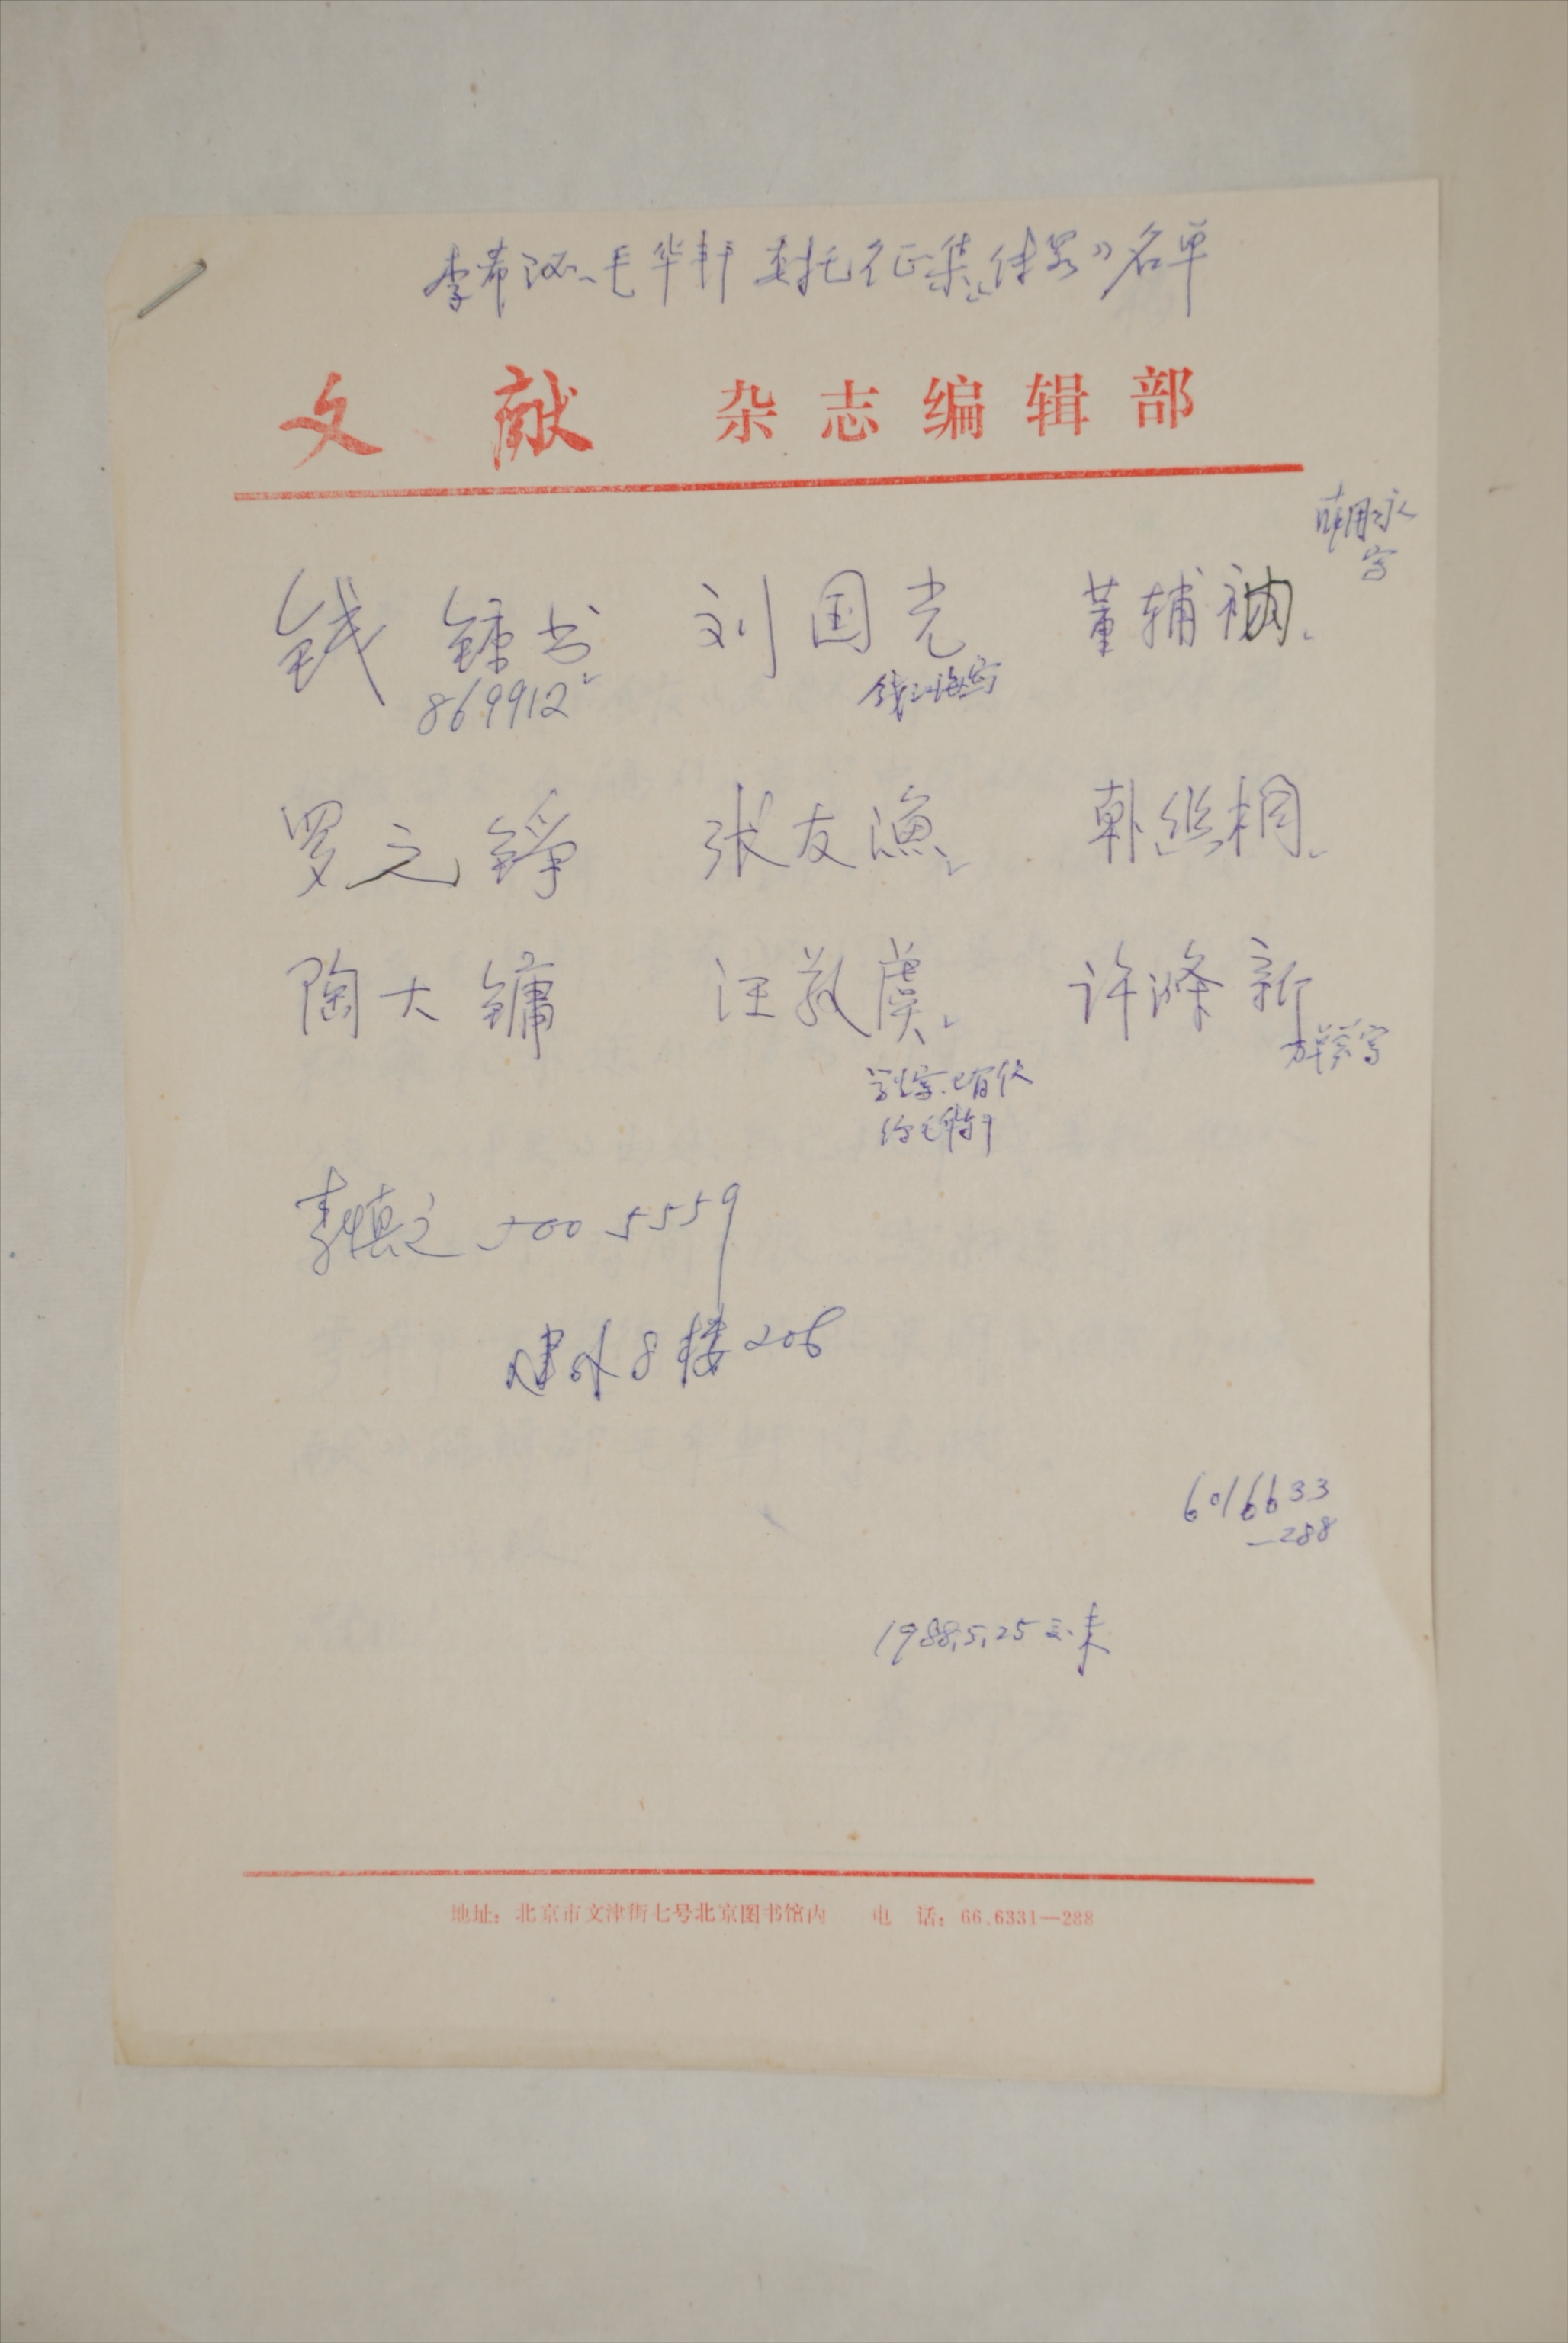 李希泌、毛华轩 委托征集“传略”名单
文献 杂志编辑部
钱钟书 刘国光 董辅礽
869912
钱江海写
罗元铮 张友渔 韩丝桐
陶大镛 汪敬虞 许涤新
方卓芬写
写 已有信
给毛华轩
李慎之 500 5559
建外8楼206
6016633
—288
1988.5.25 交来
地址：北京市文津街七号北京图书馆内 电 话：66.6331—288